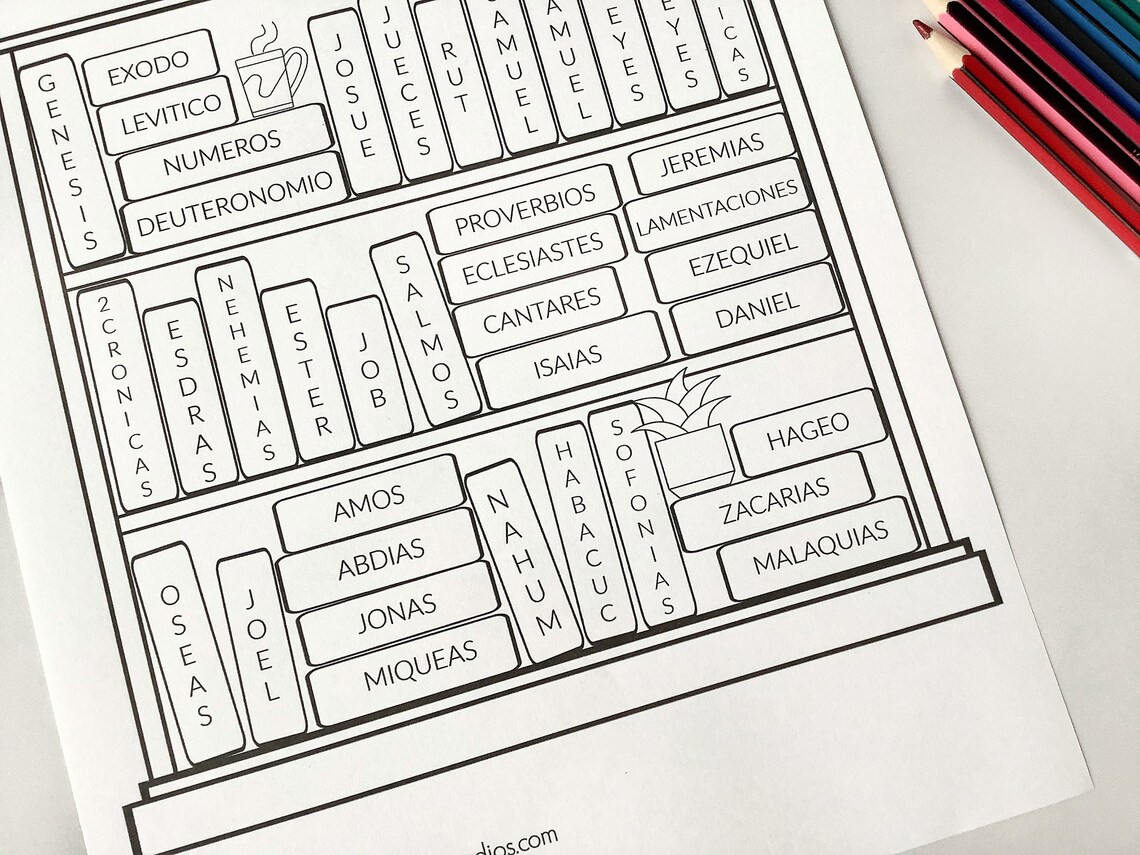 GENESIS
EXODO
LEVITICO
NUMEROS
DEUTERONOMIO
JOSUE
JUECES
RUT
AMUEL
AMUEL
EYES
EYES
ICAS
2CRONICAS
ESDRAS
NEHEMIAS
ESTER
JOB
SALMOS
PROVERBIOS
ECLESIASTES
CANTARES
ISAIAS
JEREMIAS
LAMENTACIONES
EZEQUIEL
DANIEL
OSEAS
JOEL
AMOS
ABDIAS
JONAS
MIQUEAS
NAHUM
HABACUC
SOFONIAS
HAGEO
ZACARIAS
MALAQUIAS
dios.com